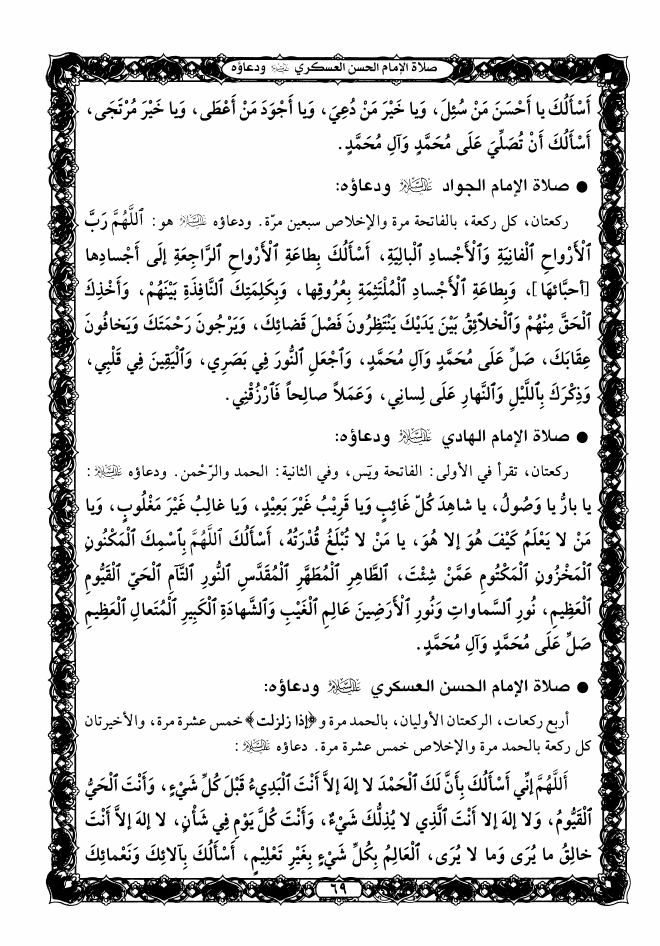 صلاة الإمام الحسن العسكري عليه السلام ودعاؤه
أَسْأَلُكَ يا أَحْسَنَ مَنْ سُئِلَ، وَيا خَيْرَ مَنْ دُعِيَ، وَيا أَجْوَدَ مَنْ أَعْطَى، وَيا خَيْرَ مُرْتَجَى،
أَسْأَلُكَ أَنْ تُصَلِّيَ عَلَى مُحَمَّدٍ وَآلِ مُحَمَّدٍ.
● صلاة الإمام الجواد عليه السلام ودعاؤه:
ركعتان، كل ركعة، بالفاتحة مرة والإخلاص سبعين مرّة. ودعاؤه عليه السلام هو: ٱللَّهُمَّ رَبَّ
ٱلْأَرْواحِ ٱلْفانِيَةِ وَٱلْأَجْسادِ ٱلْبالِيَةِ، أَسْأَلُكَ بِطاعَةِ ٱلْأَرْواحِ ٱلرَّاجِعَةِ إلَى أَجْسادِها
[أحبّائها]، وَبِطاعَةِ ٱلْأَجْسادِ ٱلْمُلْتَئِمَةِ بِعُرُوقِها، وَبِكَلِمَتِكَ ٱلنَّافِذَةِ بَيْنَهُمْ، وَأَخْذِكَ
ٱلْحَقَّ مِنْهُمْ وَٱلْخَلائِقُ بَيْنَ يَدَيْكَ يَنْتَظِرُونَ فَصْلَ قَضائِكَ، وَيَرْجُونَ رَحْمَتَكَ وَيَخافُونَ
عِقابَكَ، صَلِّ عَلَى مُحَمَّدٍ وَآلِ مُحَمَّدٍ، وَٱجْعَلِ ٱلنُّورَ فِي بَصَرِي، وَٱلْيَقِينَ فِي قَلْبِي،
وَذِكْرَكَ بِٱللَّيْلِ وَٱلنَّهارِ عَلَى لِسانِي، وَعَمَلاً صالِحاً فَٱرْزُقْنِي.
● صلاة الإمام الهادي عليه السلام ودعاؤه:
ركعتان، تقرأ في الأولى: الفاتحة ويٓس، وفي الثانية: الحمد والرّحْمن. ودعاؤه عليه السلام:
يا بارُّ يا وَصُولُ، يا شاهِدَ كُلِّ غائِبٍ وَيا قَرِيبُ غَيْرَ بَعِيْدٍ، وَيا غالِبُ غَيْرَ مَغْلُوبٍ، وَيا
مَنْ لا يَعْلَمُ كَيْفَ هُوَ إلا هُوَ، يا مَنْ لا تُبْلَغُ قُدْرَتُهُ، أَسْأَلُكَ اللَّهُمَّ بِٱسْمِكَ ٱلْمَكْنُونِ
ٱلْمَخْزُونِ ٱلْمَكْتُومِ عَمَّنْ شِئْتَ، ٱلطَّاهِرِ ٱلْمُطَهَّرِ ٱلْمُقَدَّسِ ٱلنُّورِ ٱلتَّآمِّ ٱلْحَيِّ ٱلْقَيُّومِ
ٱلْعَظِيمِ، نُورِ ٱلسَّماواتِ وَنُورِ ٱلْأَرَضِينَ عالِمِ ٱلْغَيْبِ وَٱلشَّهادَةِ ٱلْكَبِيرِ ٱلْمُتَعالِ ٱلْعَظِيمِ
صَلِّ عَلَى مُحَمَّدٍ وَآلِ مُحَمَّدٍ.
● صلاة الإمام الحسن العسكري عليه السلام ودعاؤه:
أربع ركعات، الركعتان الأوليان، بالحمد مرة و﴿إذا زلزلت﴾ خمس عشرة مرة، والأخيرتان
كل ركعة بالحمد مرة والإخلاص خمس عشرة مرة. دعاؤه عليه السلام:
أَللَّهُمَّ إنِّي أَسْأَلُكَ بِأَنَّ لَكَ ٱلْحَمْدَ لا إلهَ إلاَّ أَنْتَ ٱلْبَدِيءُ قَبْلَ كُلِّ شَيْءٍ، وَأَنْتَ ٱلْحَيُّ
ٱلْقَيُّومُ، وَلا إلهَ إلا أَنْتَ ٱلَّذِي لا يُذِلُّكَ شَيْءٌ، وَأَنْتَ كُلَّ يَوْمٍ فِي شَأْنٍ، لا إلهَ إلاَّ أَنْتَ
خالِقُ ما يُرَى وَما لا يُرَى، ٱلْعالِمُ بِكُلِّ شَيْءٍ بِغَيْرِ تَعْلِيْمٍ، أَسْأَلُكَ بِآلائِكَ وَنَعْمائِكَ
٦٩